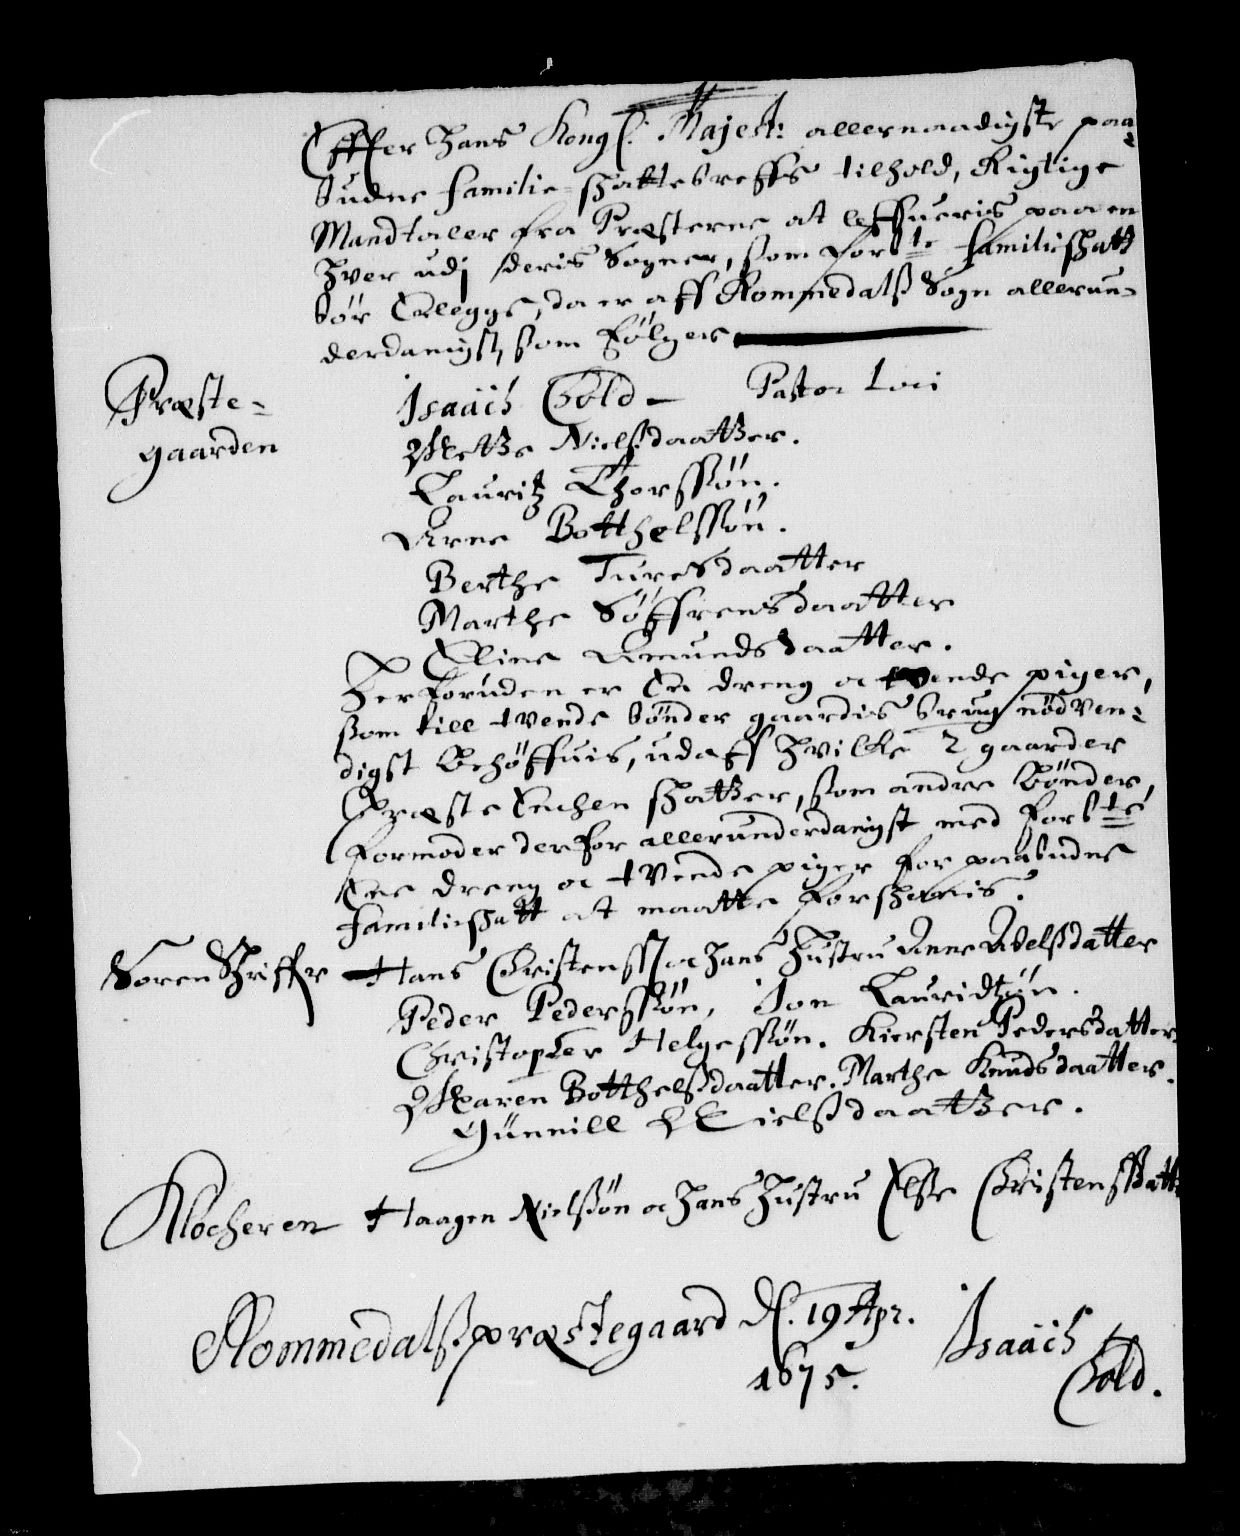 Effter Hans Kongl: Majest: allernaadigste paa-
budne familie-skattebreffs tilhold, Rigtige
Mandtaler fra Præsterne at leffueris paa en
hver udj deris Sogner, som forbte familieskatt
bør Erlegge, da er aff Rommedalß Sogn allerun-
derdanigst, som følger
Præste-
gaarden
Isaäch Cold – Pastor Loci
Mette Nielßdaatter.
Lauritz Thorssøn.
Arne Botthelssøn.
Berthe Turesdaatter
Marthe Søffrensdaatter
Eline Amundsdaatter.
Herforuden er En dreng oc tvende piger,
som till tvende bønder gaardis brug nødven-
digst Behøffuis, udaff hvilke 2 gaarder
Præste Enchen skatter, som andre Bønder,
formoder derfor allerunderdanigst med forbte
Ene dreng oc tvende piger for paabudne
familieskatt at maatte forskaanis.
Soren Skriffr Hans Christenss. oc hans hustru Anne Nielsdatter
Peder Pederssøn, Jon Lauridtzøn.
Christopher Helgessøn. Kiersten Pedersdatter.
Maren Botthelsdaatter. Marthe Knudsdaatter.
Gunnill Nielsdaatter.
Klocheren Haagen Nielsøn oc hans hustru Else Christensdatt:
Rommedalß præstegaard d. 19 Apr.
1675.
Isaäch
Cold.